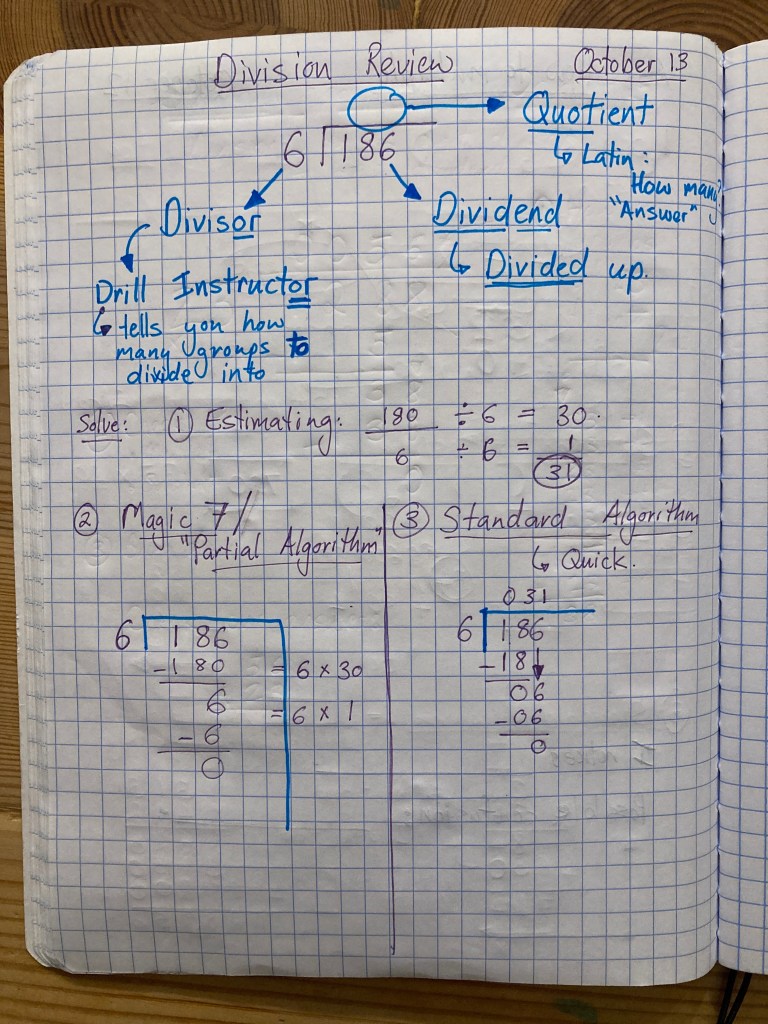 Division Review October 13
Quotient
6 186
↳ Latin:
How many?
"Answer"
Divisor
Dividend
↳ Divided up.
Drill Instructor
↳ tells you how
many groups to
divide into
Solve: ① Estimating: 180 ÷ 6 = 30.
6 ÷ 6 = 1
31
② Magic 7/
"Partial Algorithm"
6 186
-180 = 6 × 30
6 = 6 × 1
- 6
0
③ Standard Algorithm
↳ Quick.
031
6 186
-18↓
06
-06
0